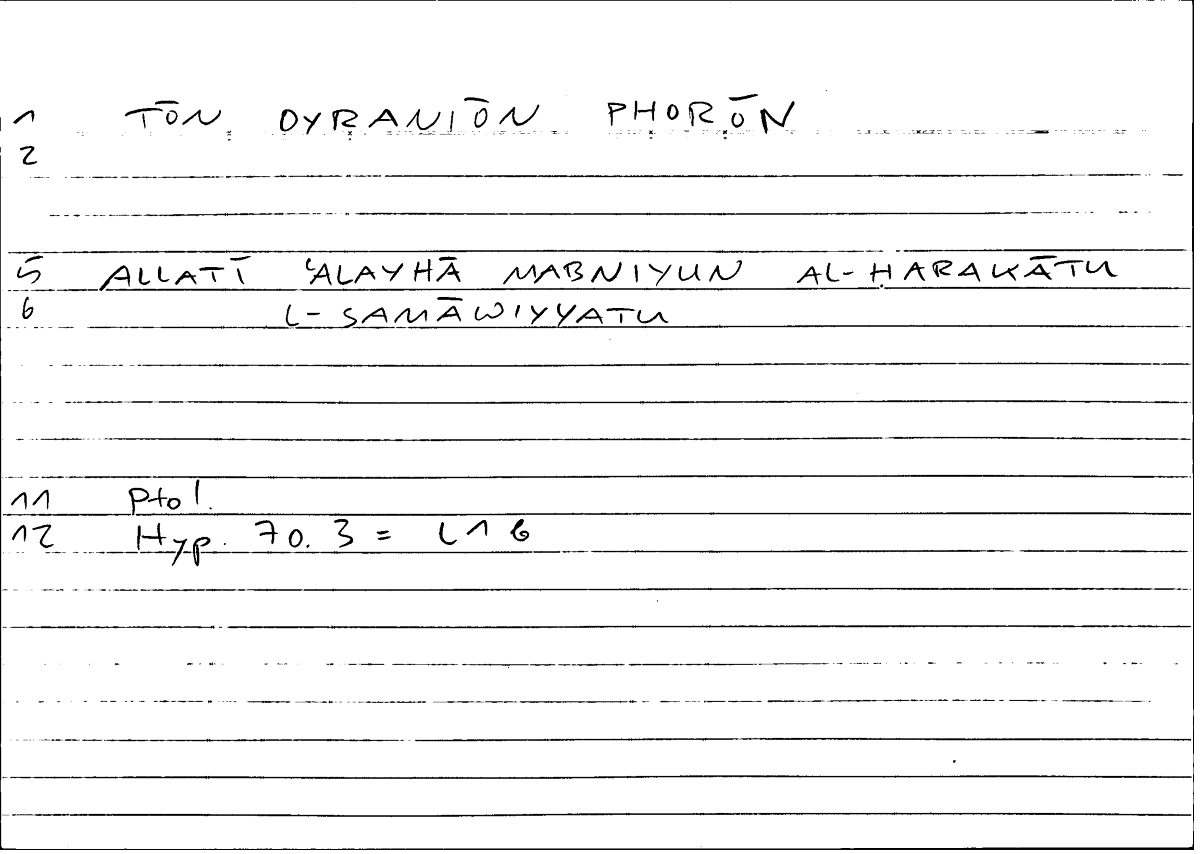 1 TŌN OYRANIŌN PHORŌN
2
5 ALLATĪ ʿALAYHĀ MABNIYUN AL-ḤARAKĀTU
6 L-SAMĀWIYYATU
11 Ptol.
12 Hyp. 70.3 = L16